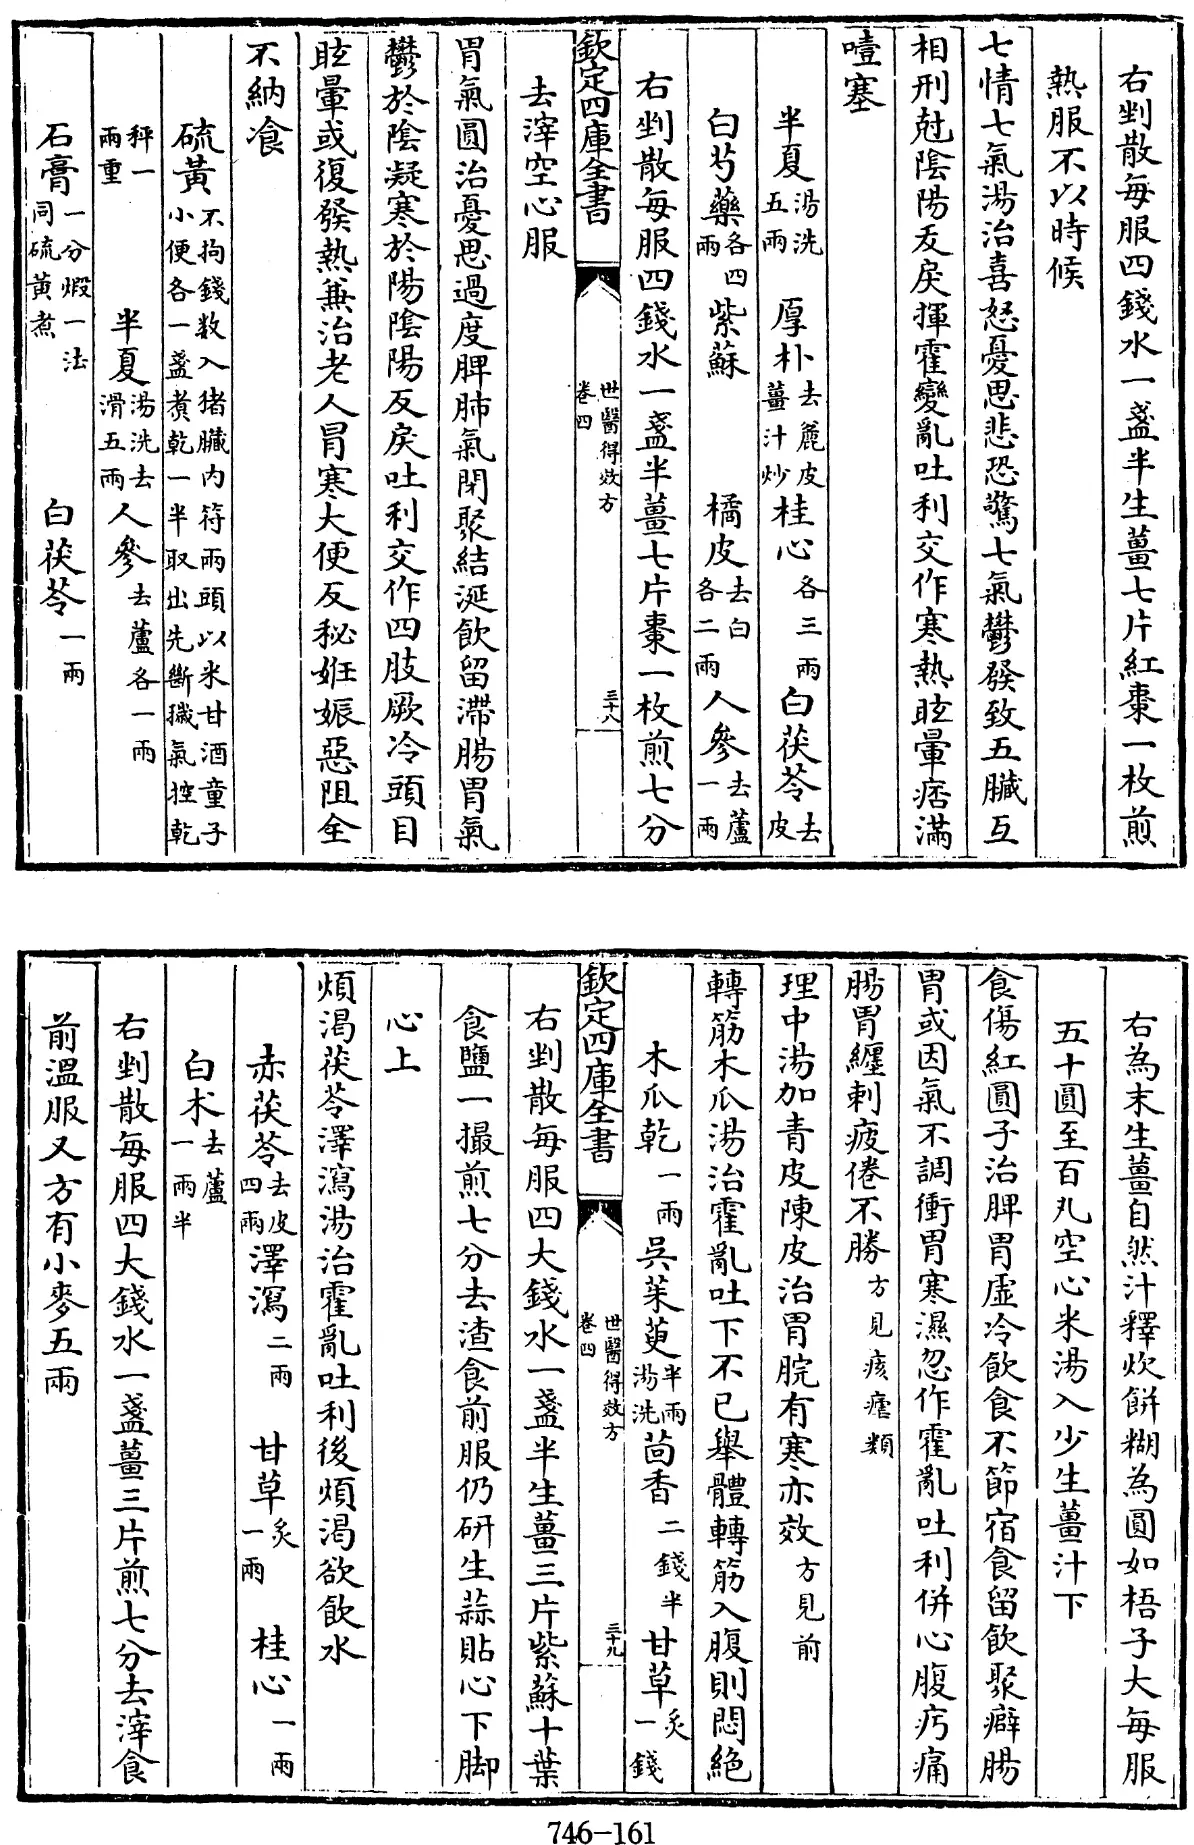 右剉散每服四錢水一盞半生薑七片紅棗一枚煎
熱服不以時候
七情七氣湯治喜怒憂思悲恐驚七氣鬱發致五臟互
相刑尅陰陽反戾揮霍變亂吐利交作寒熱眩暈痞滿
噎塞
半夏湯洗五兩 厚朴去麄皮薑汁炒 桂心各三兩 白茯苓去皮
白芍藥各四兩 紫蘇 橘皮去白各二兩 人參去蘆一兩
右剉散每服四錢水一盞半薑七片棗一枚煎七分
欽定四庫全書 世醫得效方 卷四 三十八
去滓空心服
胃氣圓治憂思過度脾肺氣閉聚結涎飲留滯腸胃氣
鬱於陰凝寒於陽陰陽反戾吐利交作四肢厥冷頭目
眩暈或復發熱兼治老人冒寒大便反秘姙娠惡阻全
不納飡
硫黃不拘錢数入猪臟内符兩頭以米甘酒童子小便各一盞煑乾一半取出先斷穢氣控乾
秤一兩重 半夏湯洗去滑五兩 人參去蘆各一兩
石膏一分煆一法同硫黃煮 白茯苓一兩
右為末生薑自然汁釋炊餅糊為圓如梧子大每服
五十圓至百丸空心米湯入少生薑汁下
食傷紅圓子治脾胃虛冷飲食不節宿食留飲聚癖腸
胃或因氣不調衝胃寒濕忽作霍亂吐利併心腹疞痛
腸胃纏刺疲倦不勝方見痎瘧類
理中湯加青皮陳皮治胃脘有寒亦效方見前
轉筋木瓜湯治霍亂吐下不已舉體轉筋入腹則悶絶
木瓜乾一兩 吳茱萸半兩湯洗 茴香二錢半 甘草炙一錢
欽定四庫全書 世醫得效方 卷四 三十九
右剉散每服四大錢水一盞半生薑三片紫蘇十葉
食鹽一撮煎七分去渣食前服仍研生蒜貼心下脚
心上
煩渴茯苓澤瀉湯治霍亂吐利後煩渴欲飲水
赤茯苓去皮四兩 澤瀉二兩 甘草炙一兩 桂心一兩
白朮去蘆一兩半
右剉散每服四大錢水一盞薑三片煎七分去滓食
前溫服又方有小麥五兩
746-161